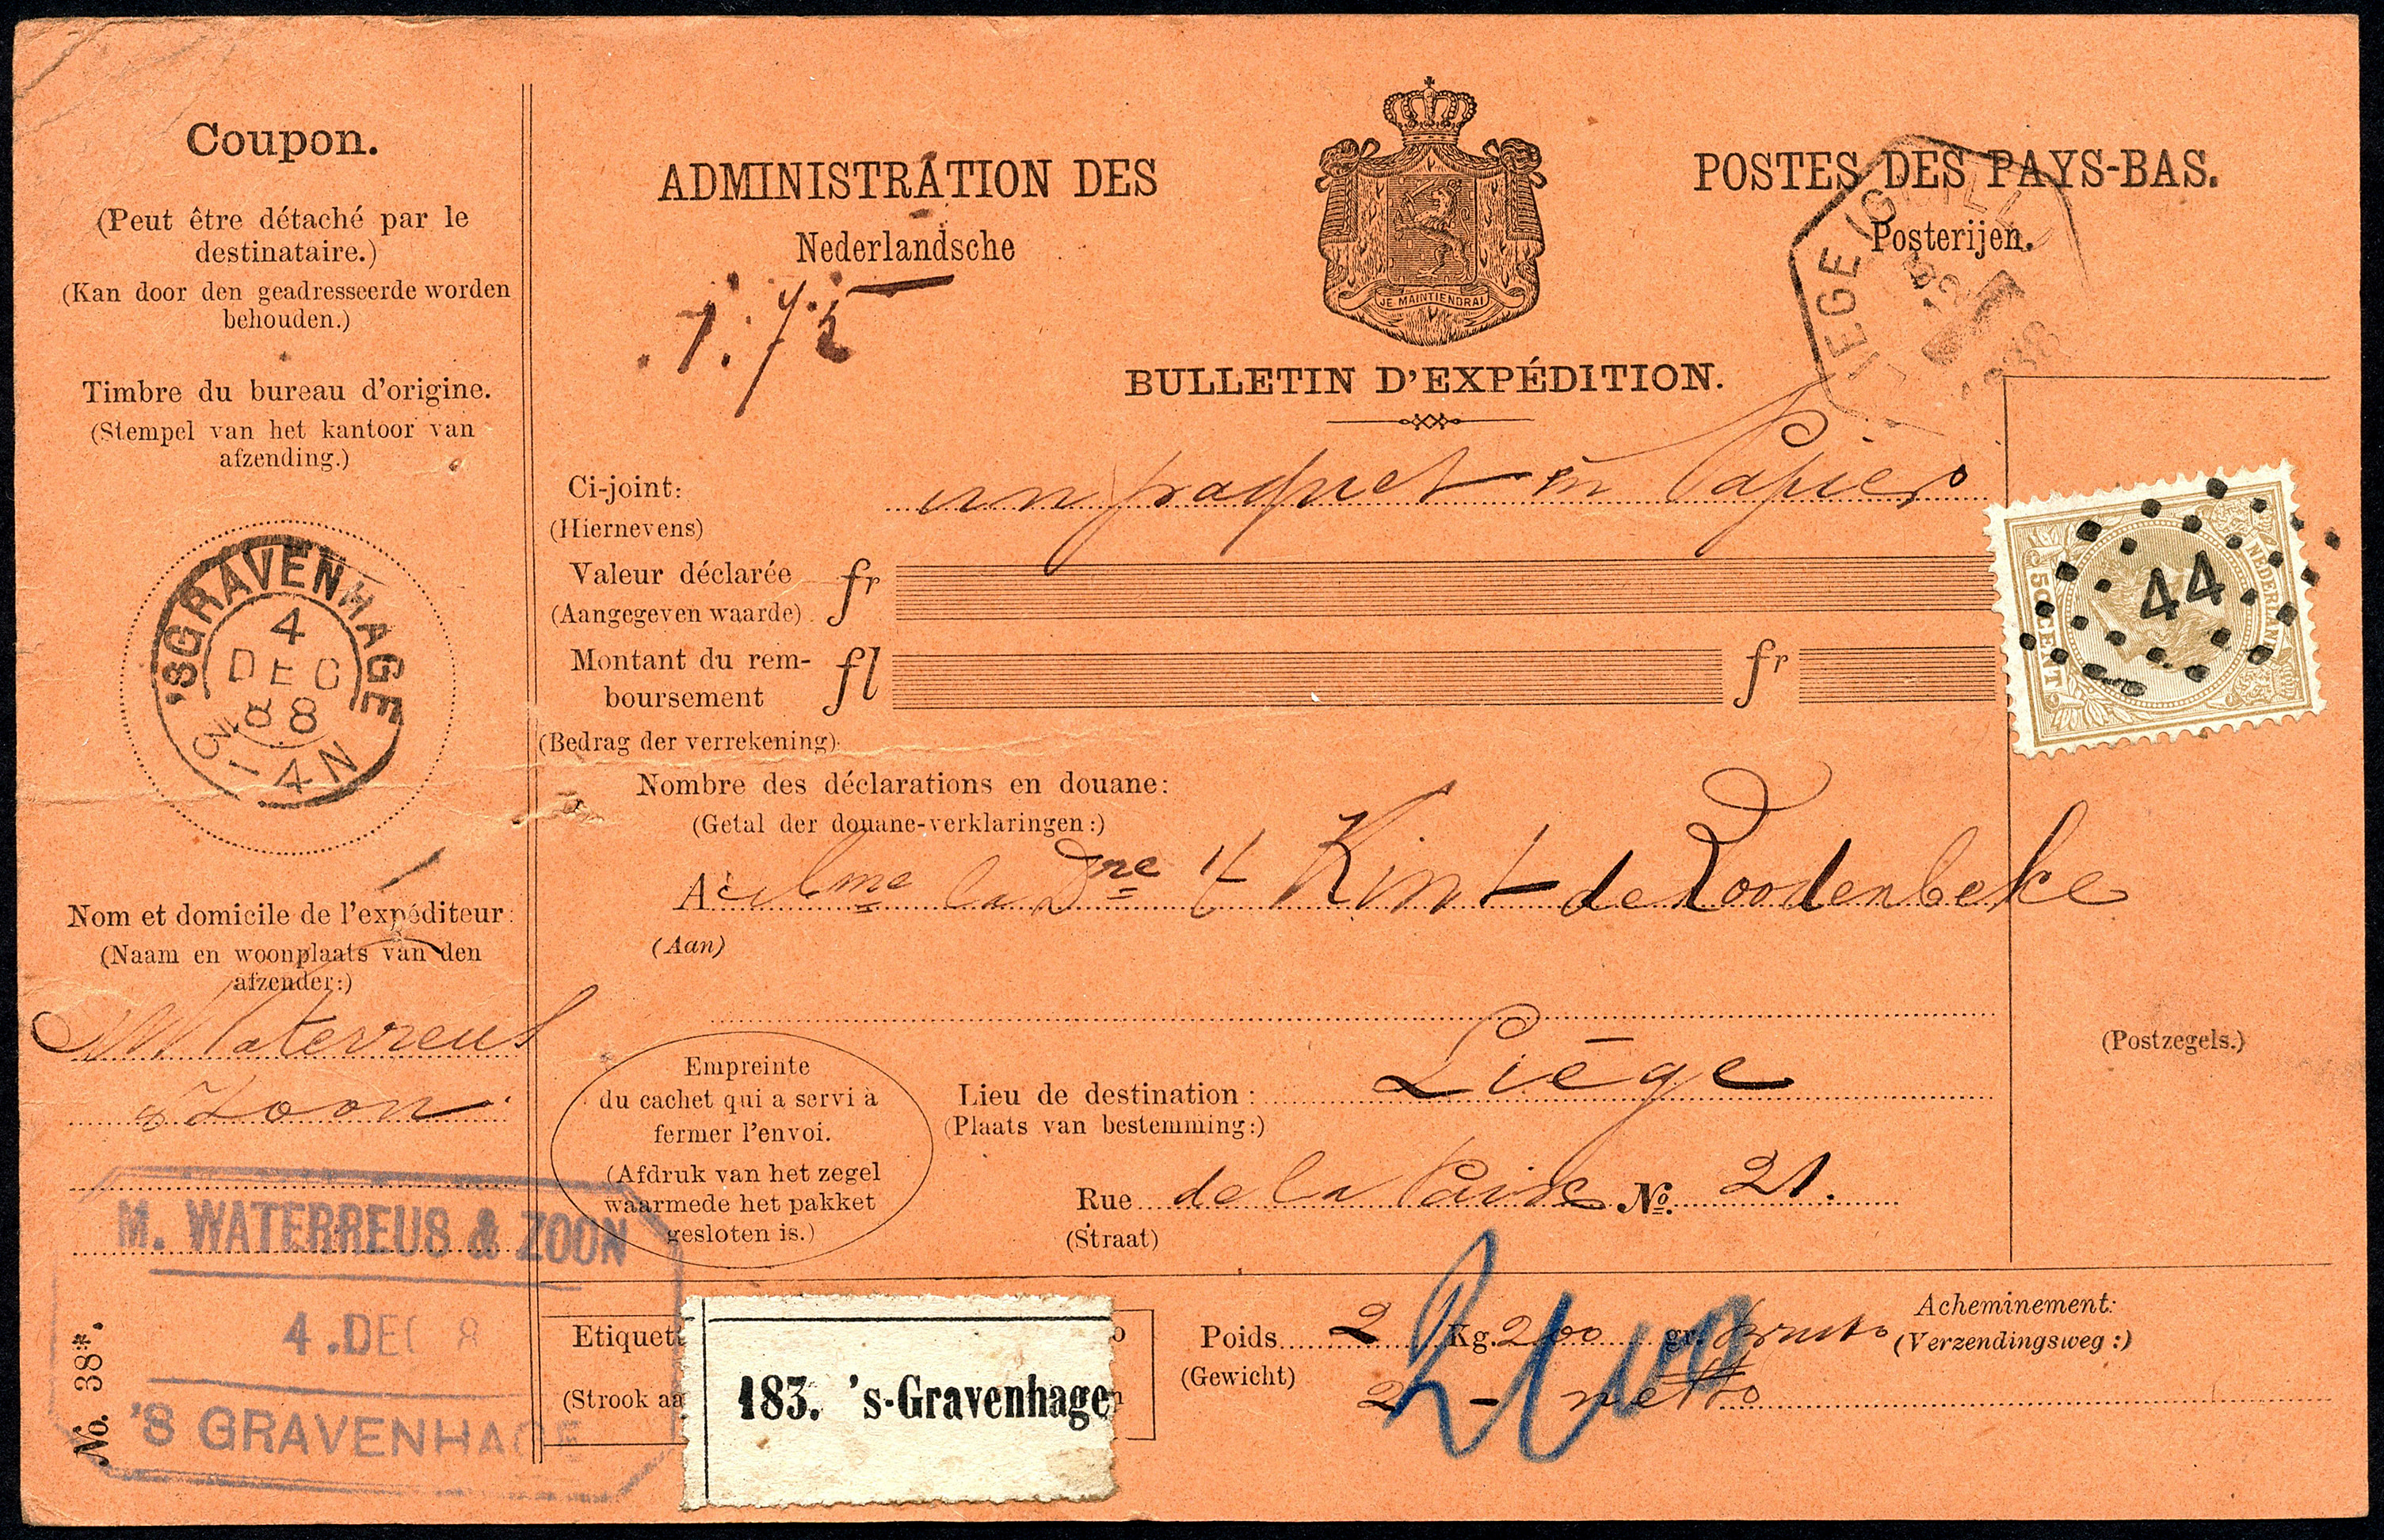 Coupon.
(Peut être détaché par le
destinataire.)
(Kan door den geadresseerde worden
behouden.)
Timbre du bureau d'origine.
(Stempel van het kantoor van
afzending.)
'SGRAVENHAGE
4
DEC
88
4-N
Nom et domicile de l'expéditeur:
(Naam en woonplaats van den
afzender:)
M Waterreus
& Zoon
M. WATERREUS & ZOON
4.DEC 8
'S GRAVENHAGE
No. 38*.
ADMINISTRATION DES
POSTES DES PAYS-BAS.
Nederlandsche
Posterijen.
JE MAINTIENDRAI
BULLETIN D'EXPÉDITION.
IEGE (GUILL
12
Ci-joint: un paquet en Papier
(Hiernevens)
Valeur déclarée fr
(Aangegeven waarde)
Montant du rem- fl fr
boursement
(Bedrag der verrekening):
NEDERLAND
50 CENT
44
Nombre des déclarations en douane:
(Getal der douane-verklaringen:)
A Mme la Dne 't Kint de Roodenbeke
(Aan)
(Postzegels.)
Empreinte
du cachet qui a servi à
fermer l'envoi.
(Afdruk van het zegel
waarmede het pakket
gesloten is.)
Lieu de destination: Liége
(Plaats van bestemming:)
Rue de la Paix No. 21.
(Straat)
Etiquet
(Strook aa
183. 's-Gravenhage
Poids 2 Kg. 200 gr. bruto
(Gewicht) 2 - netto
Acheminement:
(Verzendingsweg:)